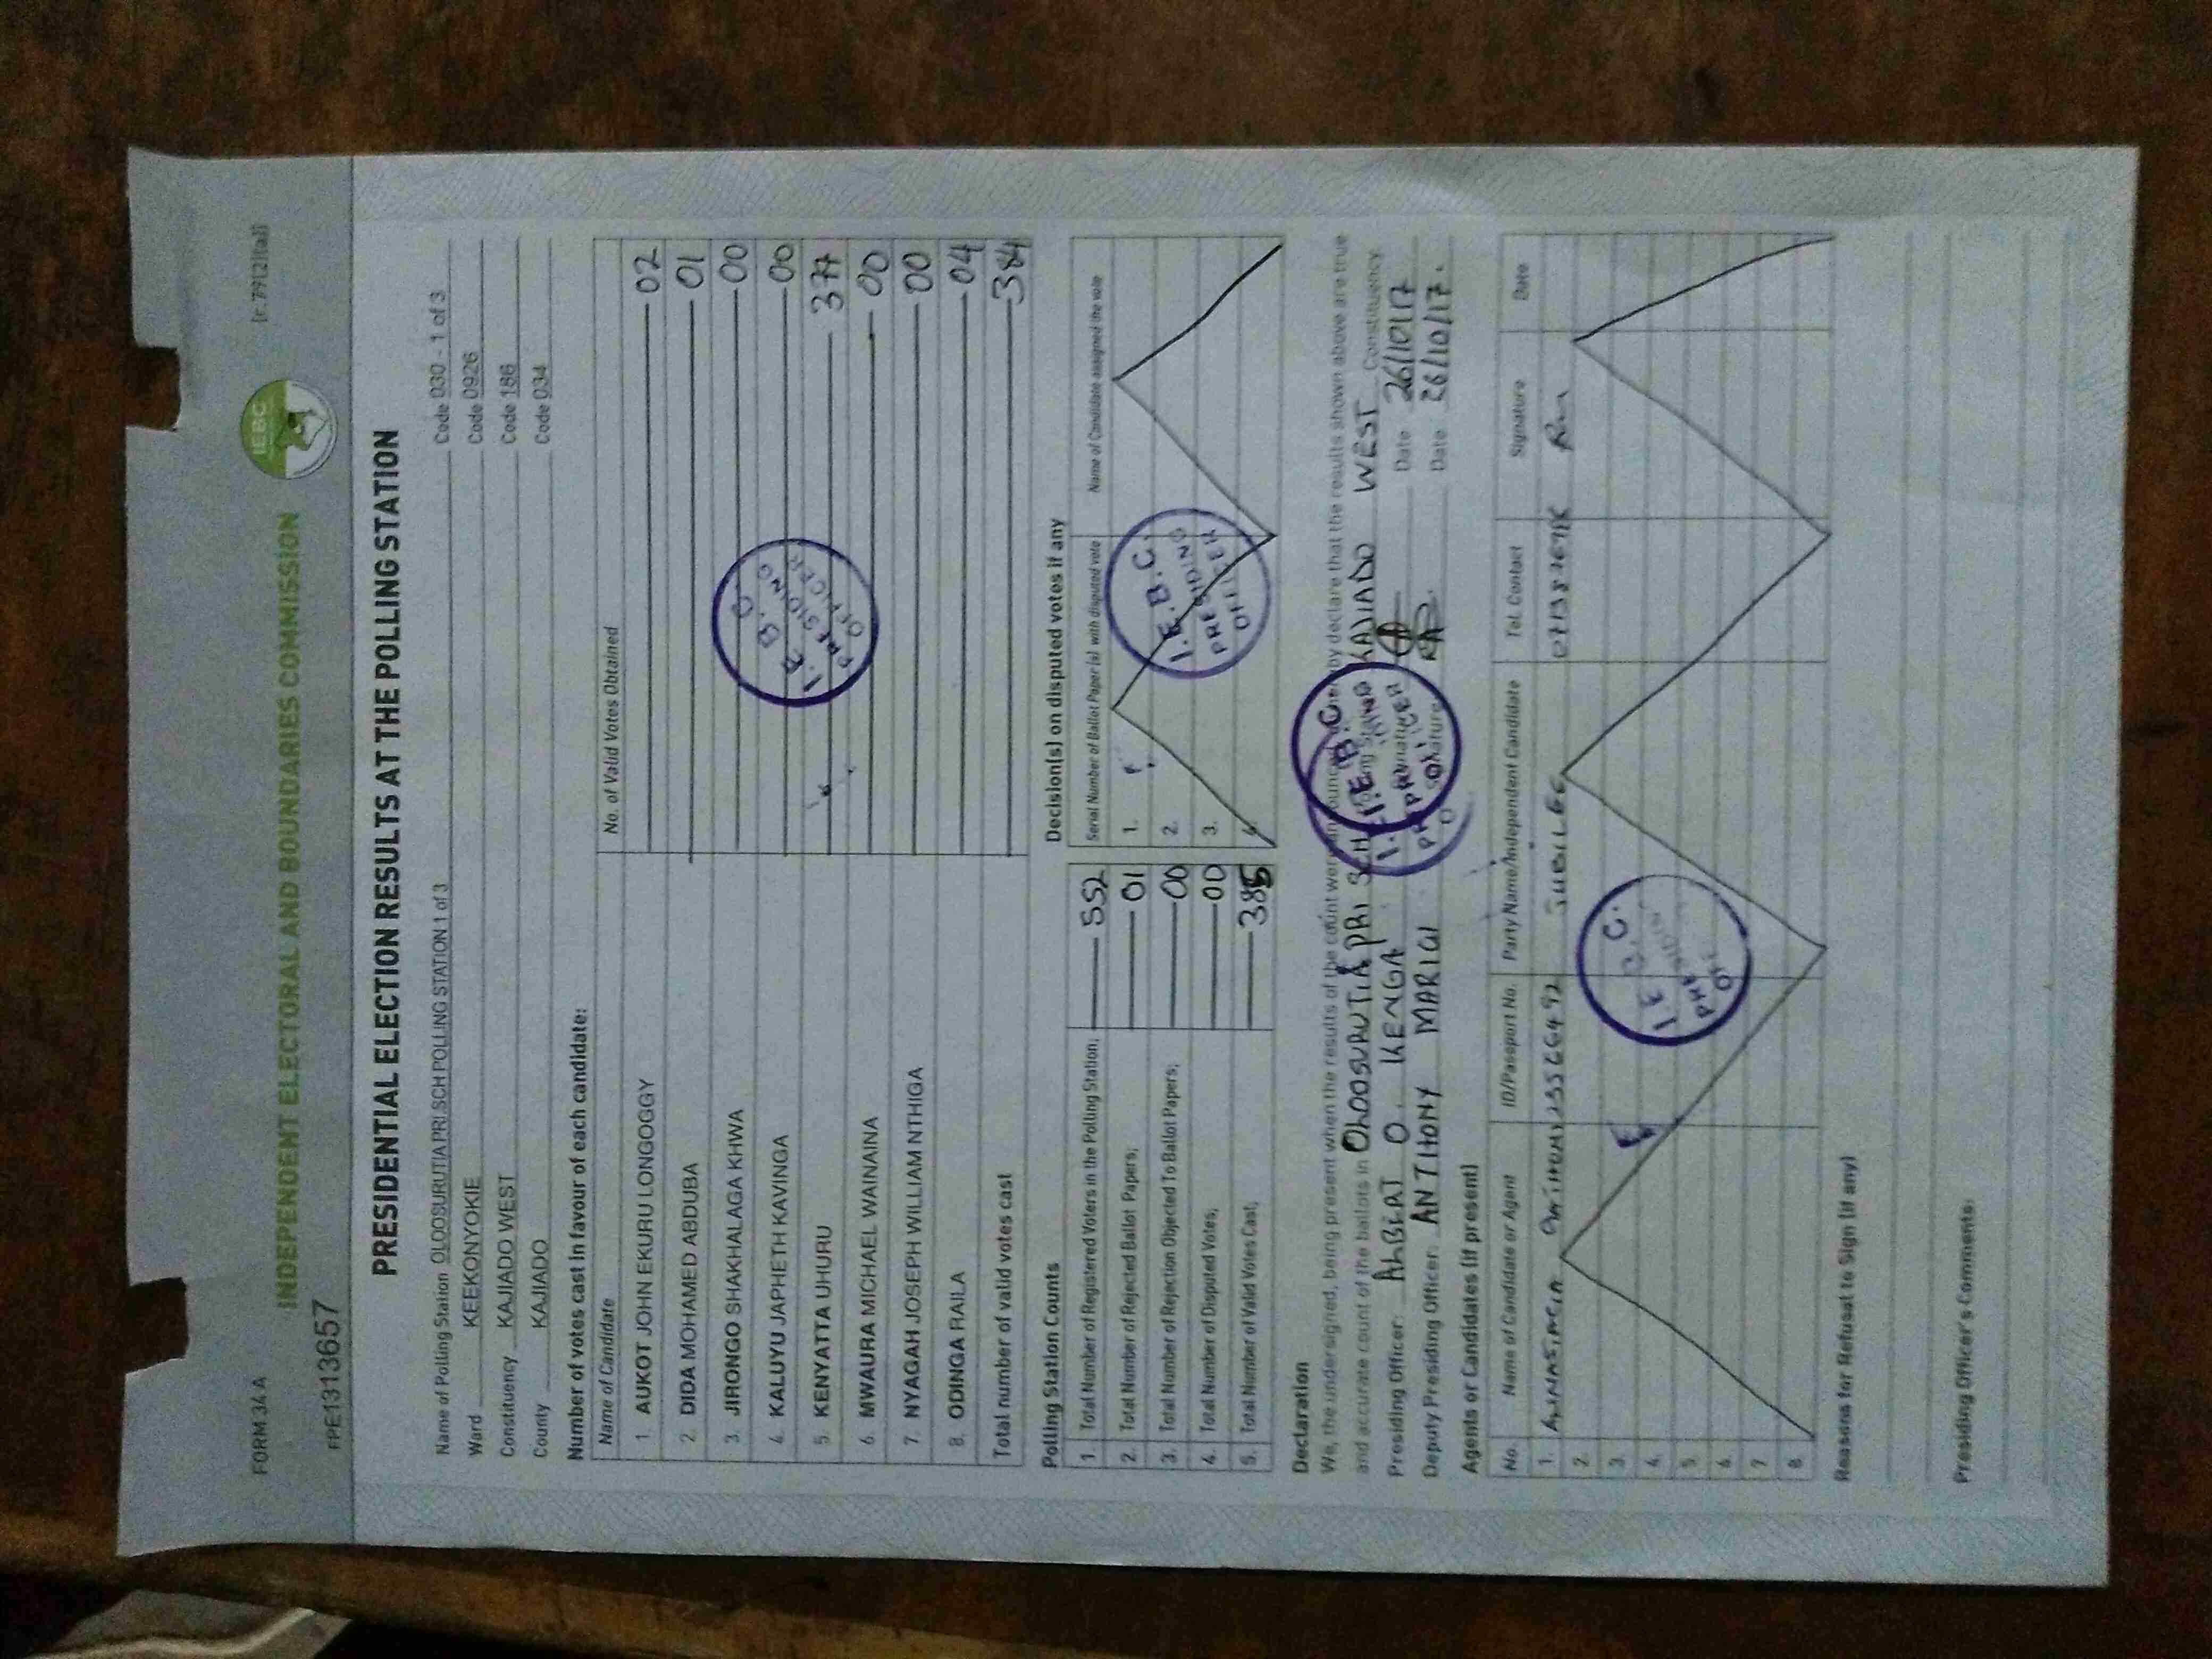 FORM 34 A
[r.79(2)(a)]
INDEPENDENT ELECTORAL AND BOUNDARIES COMMISSION
IEBC
FPE1313657
PRESIDENTIAL ELECTION RESULTS AT THE POLLING STATION
Name of Polling Station OLOOSURUTIA PRI SCH POLLING STATION 1 of 3 Code 030 - 1 of 3
Ward KEEKONYOKIE Code 0926
Constituency KAJIADO WEST Code 186
County KAJIADO Code 034
Number of votes cast in favour of each candidate:
Name of Candidate No. of Valid Votes Obtained
1 AUKOT JOHN EKURU LONGOGGY 02
2. DIDA MOHAMED ABDUBA 01
3. JIRONGO SHAKHALAGA KHWA 00
4. KALUYU JAPHETH KAVINGA 00
5. KENYATTA UHURU 377
6. MWAURA MICHAEL WAINAINA 00
7. NYAGAH JOSEPH WILLIAM NTHIGA 00
8. ODINGA RAILA 04
Total number of valid votes cast 384
I.E.B.C
PRESIDING
OFFICER
Polling Station Counts
1. Total Number of Registered Voters in the Polling Station; 552
2. Total Number of Rejected Ballot Papers; 01
3. Total Number of Rejection Objected To Ballot Papers; 00
4. Total Number of Disputed Votes; 00
5. Total Number of Valid Votes Cast;
Decision(s) on disputed votes if any
Serial Number of Ballot Paper (s) with disputed vote Name of Candidate assigned the vote
1.
2.
3.
4.
I.E.B.C.
PRESIDING
OFFICER
Declaration
We, the undersigned, being present when the results of the count were declare that the results shown above are true
and accurate count of the ballots in PRI SCH KAJIADO WEST Constituency.
Presiding Officer: ALBERT O. KENGA Date 26/10/17
Deputy Presiding Officer: ANTHONY Date 26/10/17.
I.E.B.C
Agents or Candidates (if present)
No. Name of Candidate or Agent ID/Passport No. Party Name/Independent Candidate Tel. Contact Signature Date
1. JUBILEE
2.
3.
4.
5.
6.
7.
8.
I.E.B.C.
Reasons for Refusal to Sign (if any)
Presiding Officer's Comments: